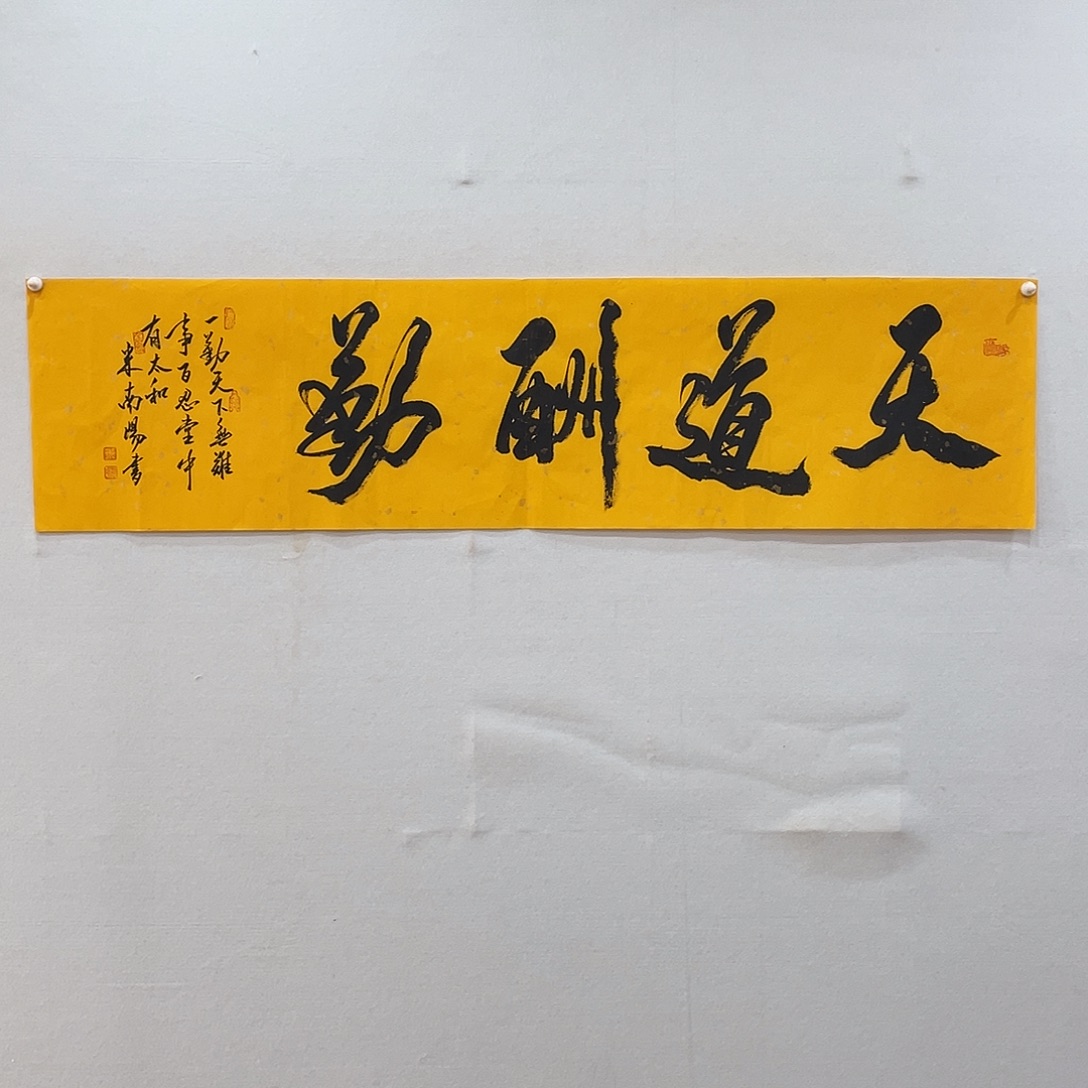 天道酬勤
一勤天下無難
事百忍堂中
有太和
米南陽書